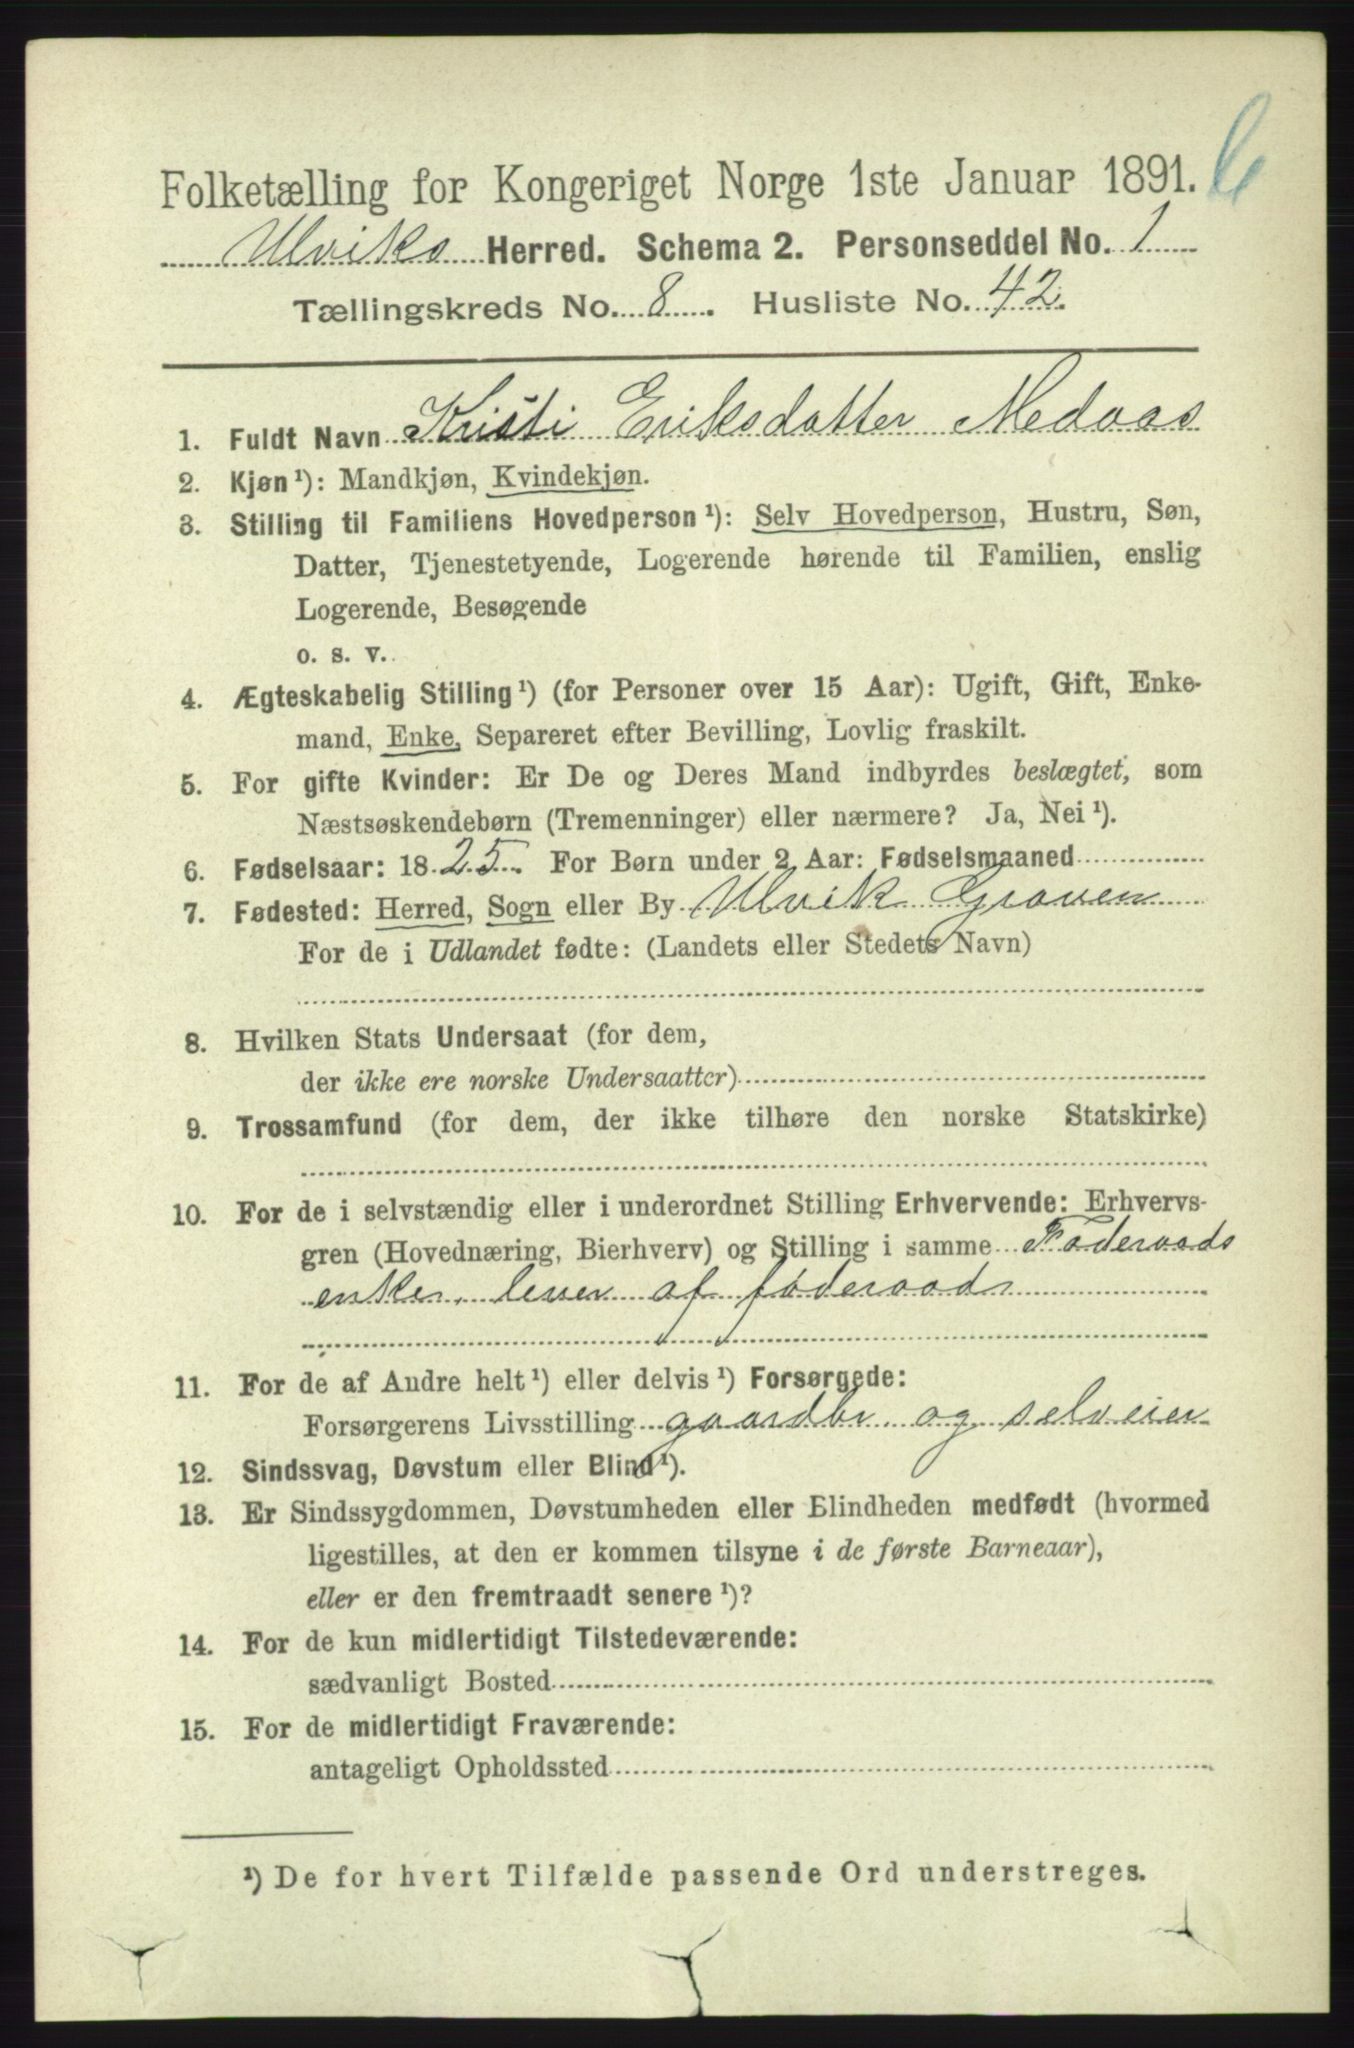 Folketælling for Kongeriget Norge 1ste Januar 1891.
Ulviks Herred. Schema 2. Personseddel No. 1
Tællingskreds No. 8. Husliste No. 42.
1. Fuldt Navn Kristi Eriksdatter Medaas
2. Kjøn¹): Mandkjøn, Kvindekjøn.
3. Stilling til Familiens Hovedperson¹): Selv Hovedperson, Hustru, Søn,
Datter, Tjenestetyende, Logerende hørende til Familien, enslig
Logerende, Besøgende
o. s. v.
4. Ægteskabelig Stilling¹) (for Personer over 15 Aar): Ugift, Gift, Enke-
mand, Enke, Separeret efter Bevilling, Lovlig fraskilt.
5. For gifte Kvinder: Er De og Deres Mand indbyrdes beslægtet, som
Næstsøskendebørn (Tremenninger) eller nærmere? Ja, Nei¹).
6. Fødselsaar: 1825. For Børn under 2 Aar: Fødselsmaaned
7. Fødested: Herred, Sogn eller By Ulvik Graven
For de i Udlandet fødte: (Landets eller Stedets Navn)
8. Hvilken Stats Undersaat (for dem,
der ikke ere norske Undersaatter)
9. Trossamfund (for dem, der ikke tilhøre den norske Statskirke)
10. For de i selvstændig eller i underordnet Stilling Erhvervende: Erhvervs-
gren (Hovednæring, Bierhverv) og Stilling i samme Føderaads
enke, lever af føderaad
11. For de af Andre helt¹) eller delvis¹) Forsørgede:
Forsørgerens Livsstilling gaardbr. og selveier
12. Sindssvag, Døvstum eller Blind¹).
13. Er Sindssygdommen, Døvstumheden eller Blindheden medfødt (hvormed
ligestilles, at den er kommen tilsyne i de første Barneaar),
eller er den fremtraadt senere¹)?
14. For de kun midlertidigt Tilstedeværende:
sædvanligt Bosted
15. For de midlertidigt Fraværende:
antageligt Opholdssted
¹) De for hvert Tilfælde passende Ord understreges.